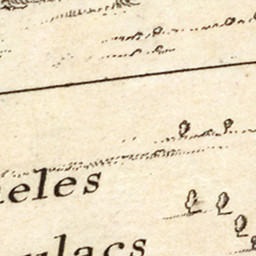 eles
ulacs